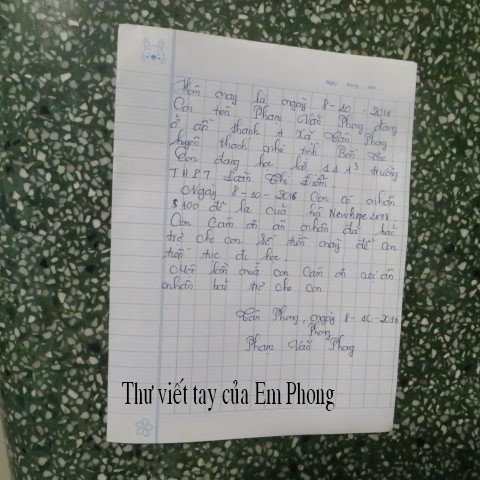 Hôm nay là ngày 8-10-2016
Con tên Phạm Văn Phong đang
ở ấp thạnh A Xã Tân Phong
huyện thạnh phú tỉnh Bến Tre
Con đang học lớp 11A3 trường
THPT Đoàn Thị Điểm
Ngày 8-10-2016 Con có nhận
$100 đô la của hội Newhope
Con Cám ơn ân nhân đã bảo
trợ cho con số tiền này để con
tiếp tục đi học.
Một lần nữa con Cám ơn ân
nhân bảo trợ cho con
Tân Phong, ngày 8-10-2016
Phong
Phạm Văn Phong
Thư viết tay của Em Phong